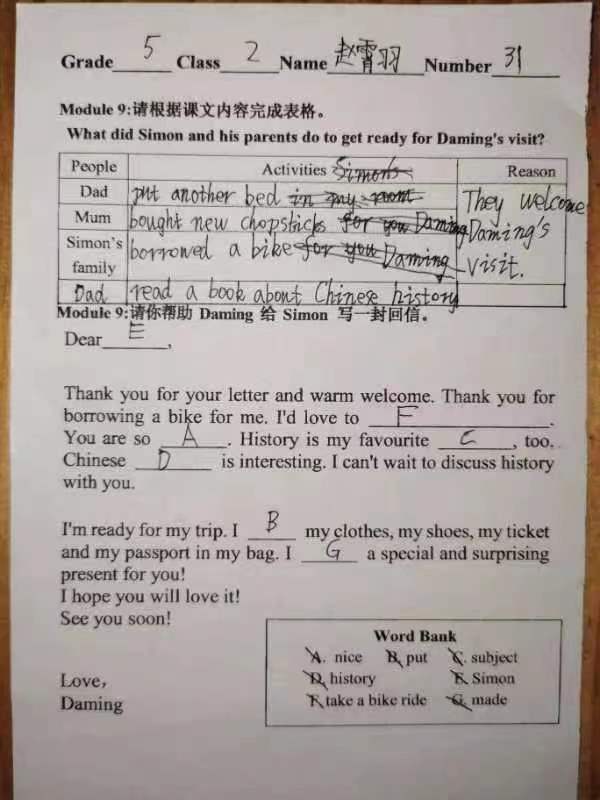 Grade 5 Class 2 Name 赵霄羽 Number 31
Module 9:请根据课文内容完成表格。
What did Simon and his parents do to get ready for Daming's visit?
People Activities Simon's Reason
Dad put another bed in my room They welcome
Mum bought new chopsticks for you Daming Daming's
Simon's family borrowed a bike for you Daming visit.
Dad read a book about Chinese history
Module 9:请你帮助 Daming 给 Simon 写一封回信。
Dear E,
Thank you for your letter and warm welcome. Thank you for
borrowing a bike for me. I'd love to F.
You are so A. History is my favourite C, too.
Chinese D is interesting. I can't wait to discuss history
with you.
I'm ready for my trip. I B my clothes, my shoes, my ticket
and my passport in my bag. I G a special and surprising
present for you!
I hope you will love it!
See you soon!
Word Bank
A. nice B. put C. subject
D. history E. Simon
F. take a bike ride G. made
Love,
Daming